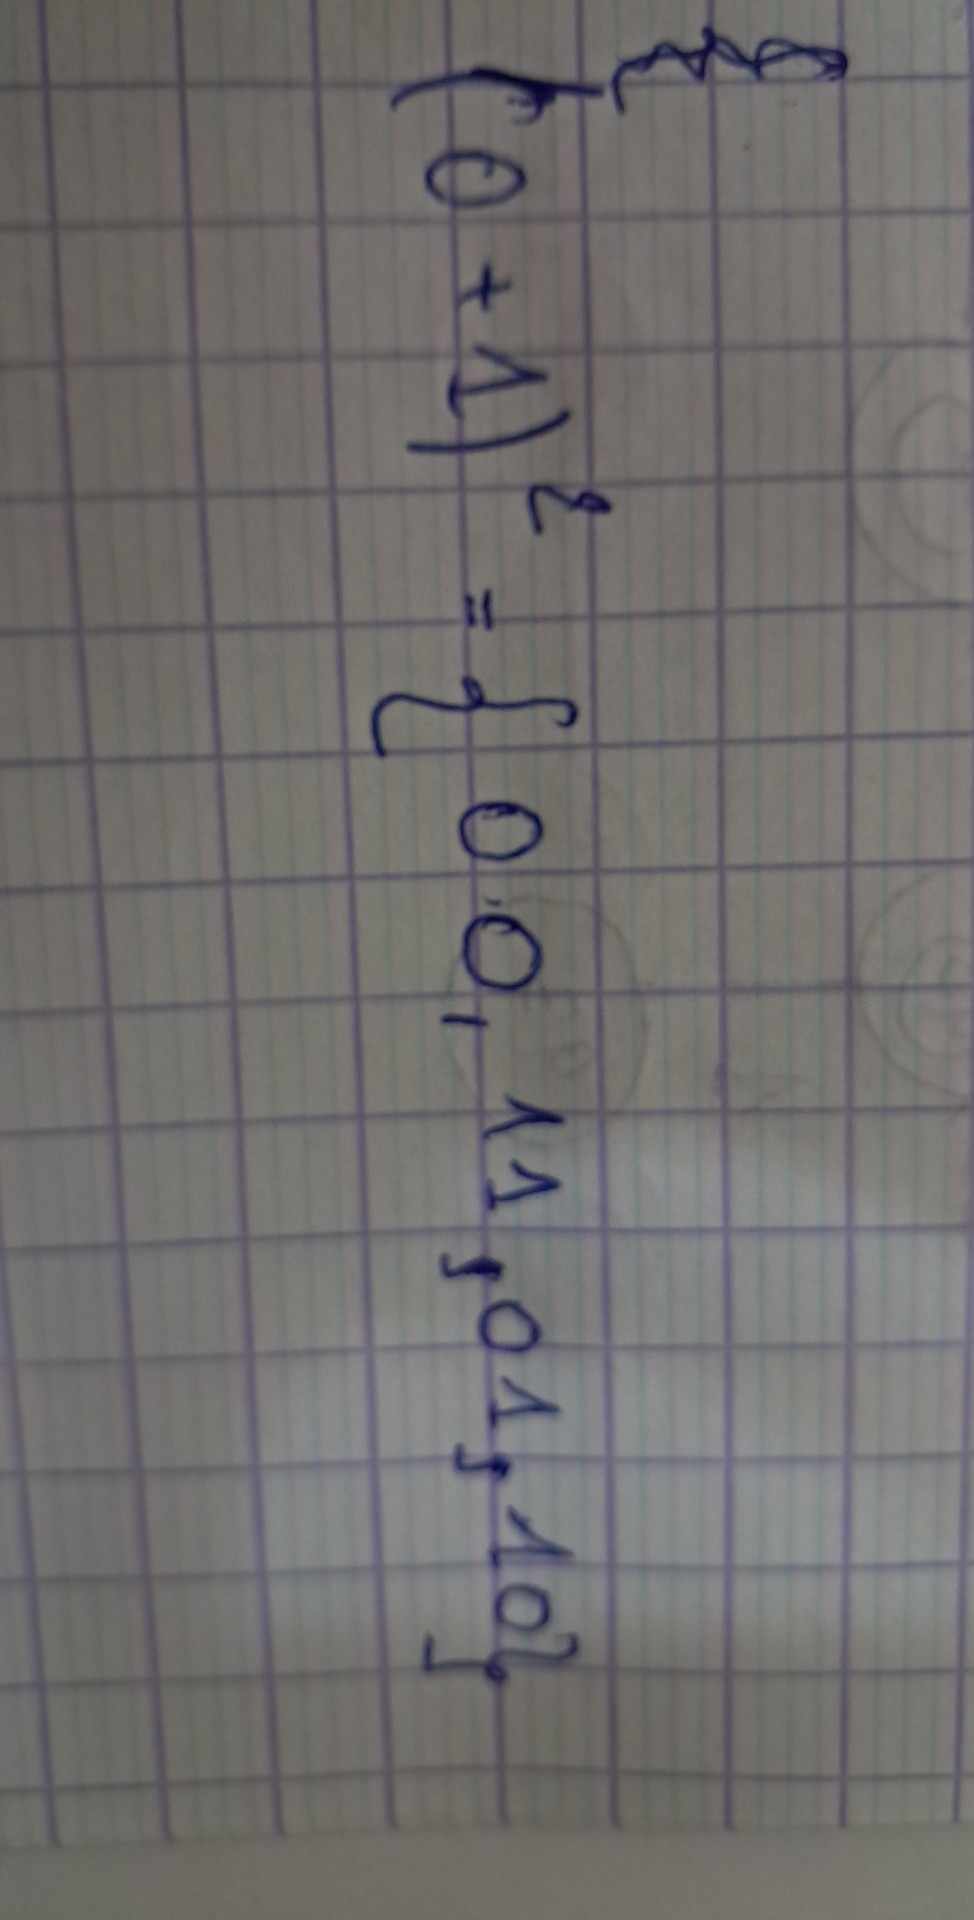 (0+1)² = { 0.0, 11, 01, 10}